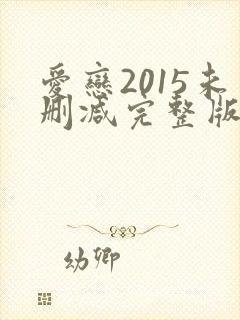 愛戀2015未
删减完整版
幼卿